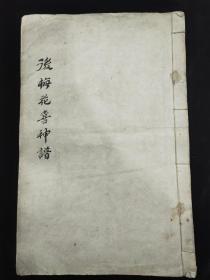 後梅花喜神譜